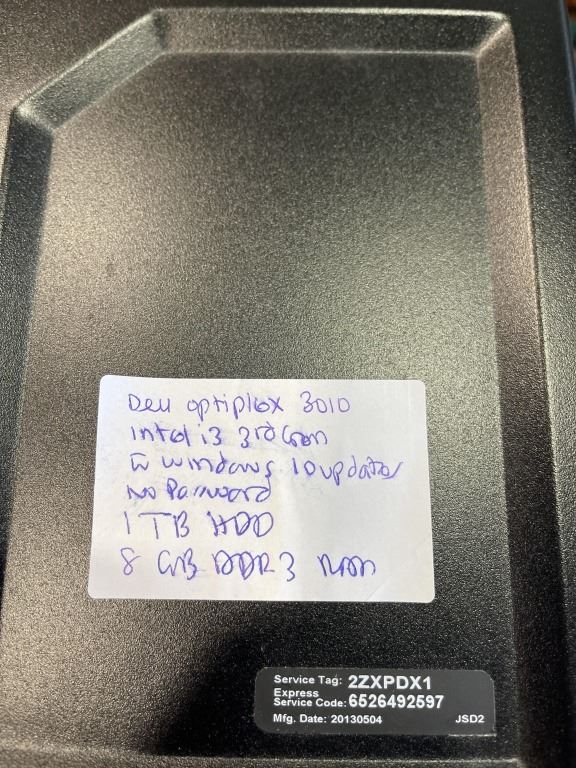 Dell optiplex 3010
intel i3 3rd Gen
windows 10 updates
No Password
1 TB HDD
8 GB DDR3 Ram
Service Tag: 2ZXPDX1
Express
Service Code: 6526492597
Mfg. Date: 20130504 JSD2